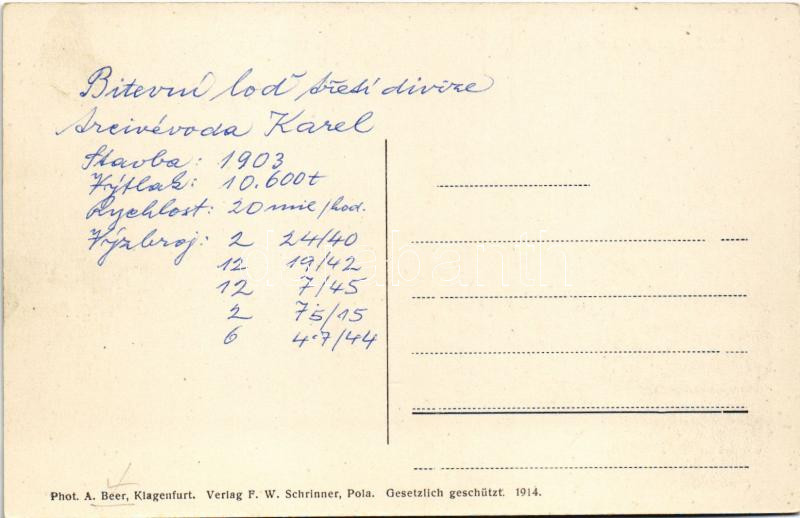 Bitevní loď třetí divize
Arcivévoda Karel
Stavba: 1903
Výtlak: 10.600t
Rychlost: 20 mil/hod.
Výzbroj: 2 24/40
12 19/42
12 7/45
2 75/15
6 4·7/44
darabanth
Phot. A. Beer, Klagenfurt. Verlag F. W. Schrinner, Pola. Gesetzlich geschützt. 1914.